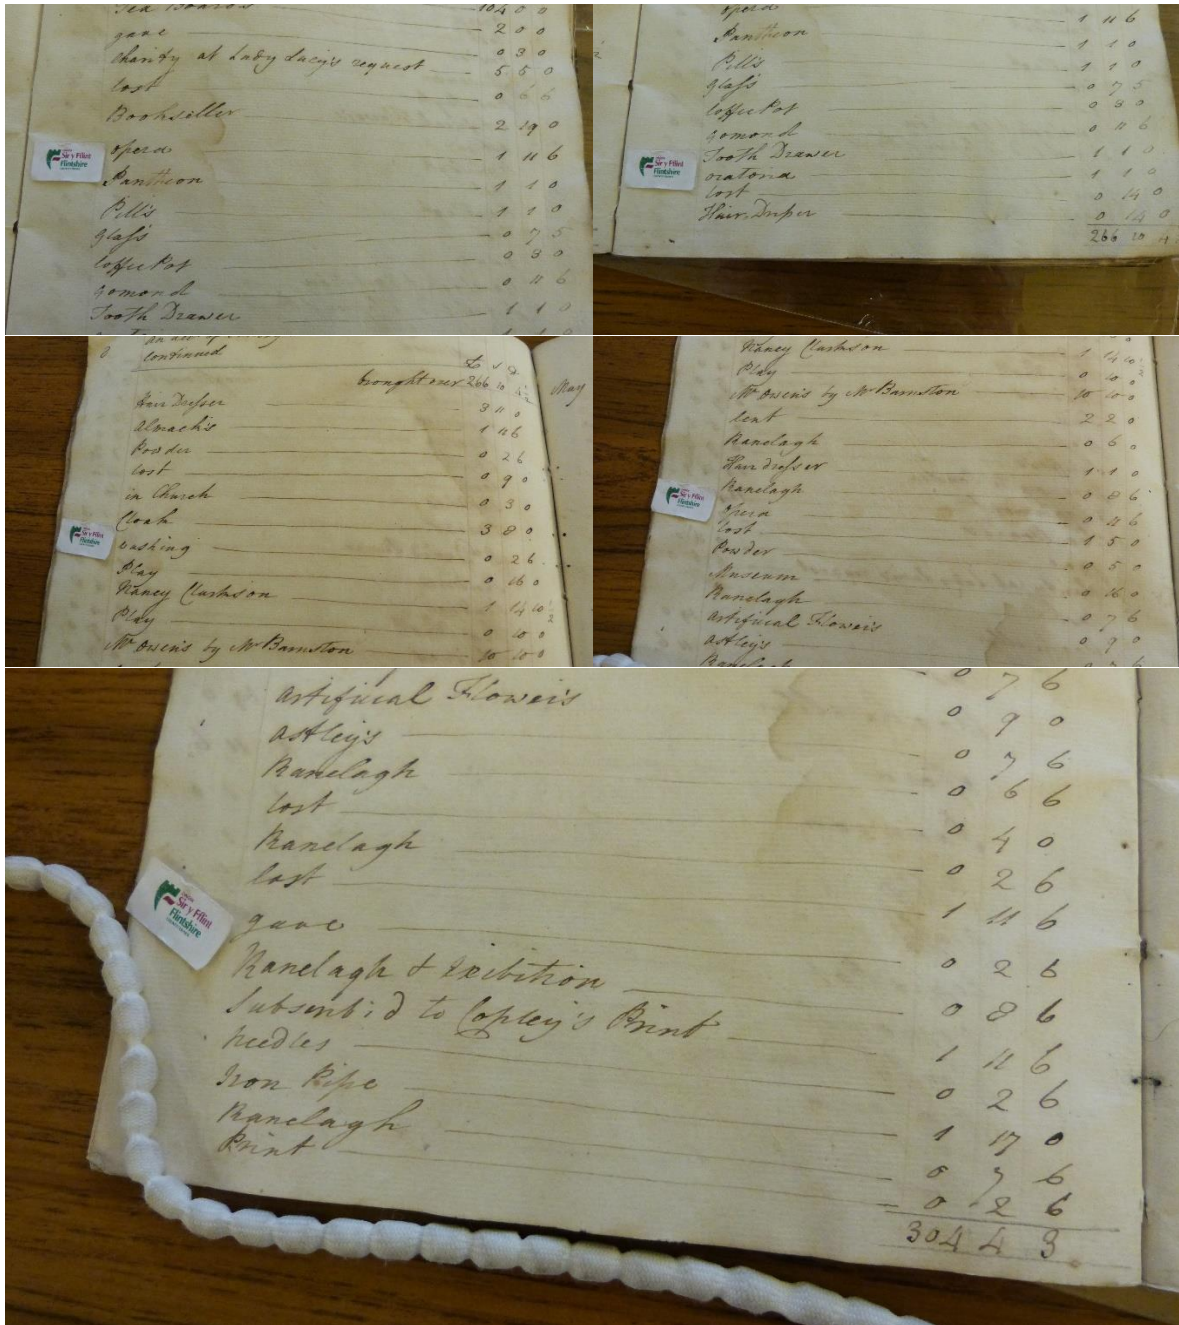 Tea Boards 2 0 0
gave 0 3 0
Charity at Lady Lucy's request 5 5 0
lost 0 6 6
Bookseller 2 19 0
opera 1 11 6
Pantheon 1 1 0
Pill's 1 1 0
glass 0 7 5
Coffee Pot 0 3 0
gomond 0 11 6
Tooth Drawer 1 1 0
Sir y Fflint
Flintshire
opera 1 11 6
Pantheon 1 1 0
Pill's 1 1 0
glass 0 7 5
Coffee Pot 0 3 0
gomond 0 11 6
Tooth Drawer 1 1 0
oratorio 1 1 0
lost 0 14 0
Hair Dresser 0 14 0
266 10 4
Sir y Fflint
Flintshire
continued
£ s d
brought over 266 10 4
May
Hair Dresser 3 11 0
Almack's 1 11 6
Powder 0 2 6
lost 0 9 0
in Church 0 3 0
Cloak 3 8 0
washing 0 2 6
Play 0 16 0
Nancy Clarkson 1 14 10 1/2
Play 0 10 0
Mr Owens by Mr Barnston 10 10 0
Sir y Fflint
Flintshire
Nancy Clarkson 1 14 10 1/2
Play 0 10 0
Mr Owens by Mr Barnston 10 10 0
lent 2 2 0
Ranelagh 0 6 0
Hair dresser 1 1 0
Ranelagh 0 8 6
opera 0 11 6
lost 1 5 0
Powder 0 5 0
Museum 0 16 0
Ranelagh 0 7 6
artificial Flowers 0 9 0
astley's 0 7 6
Ranelagh
Sir y Fflint
Flintshire
0 7 6
artificial Flowers 0 9 0
astley's 0 7 6
Ranelagh 0 6 6
lost 0 4 0
Ranelagh 0 2 6
lost 1 11 6
gave 0 2 6
Ranelagh & Exibition 0 8 6
Subscrib'd to Copley's Print 1 11 6
needles 0 2 6
Iron Pipe 1 17 0
Ranelagh 0 7 6
Print 0 2 6
304 4 3
Sir y Fflint
Flintshire